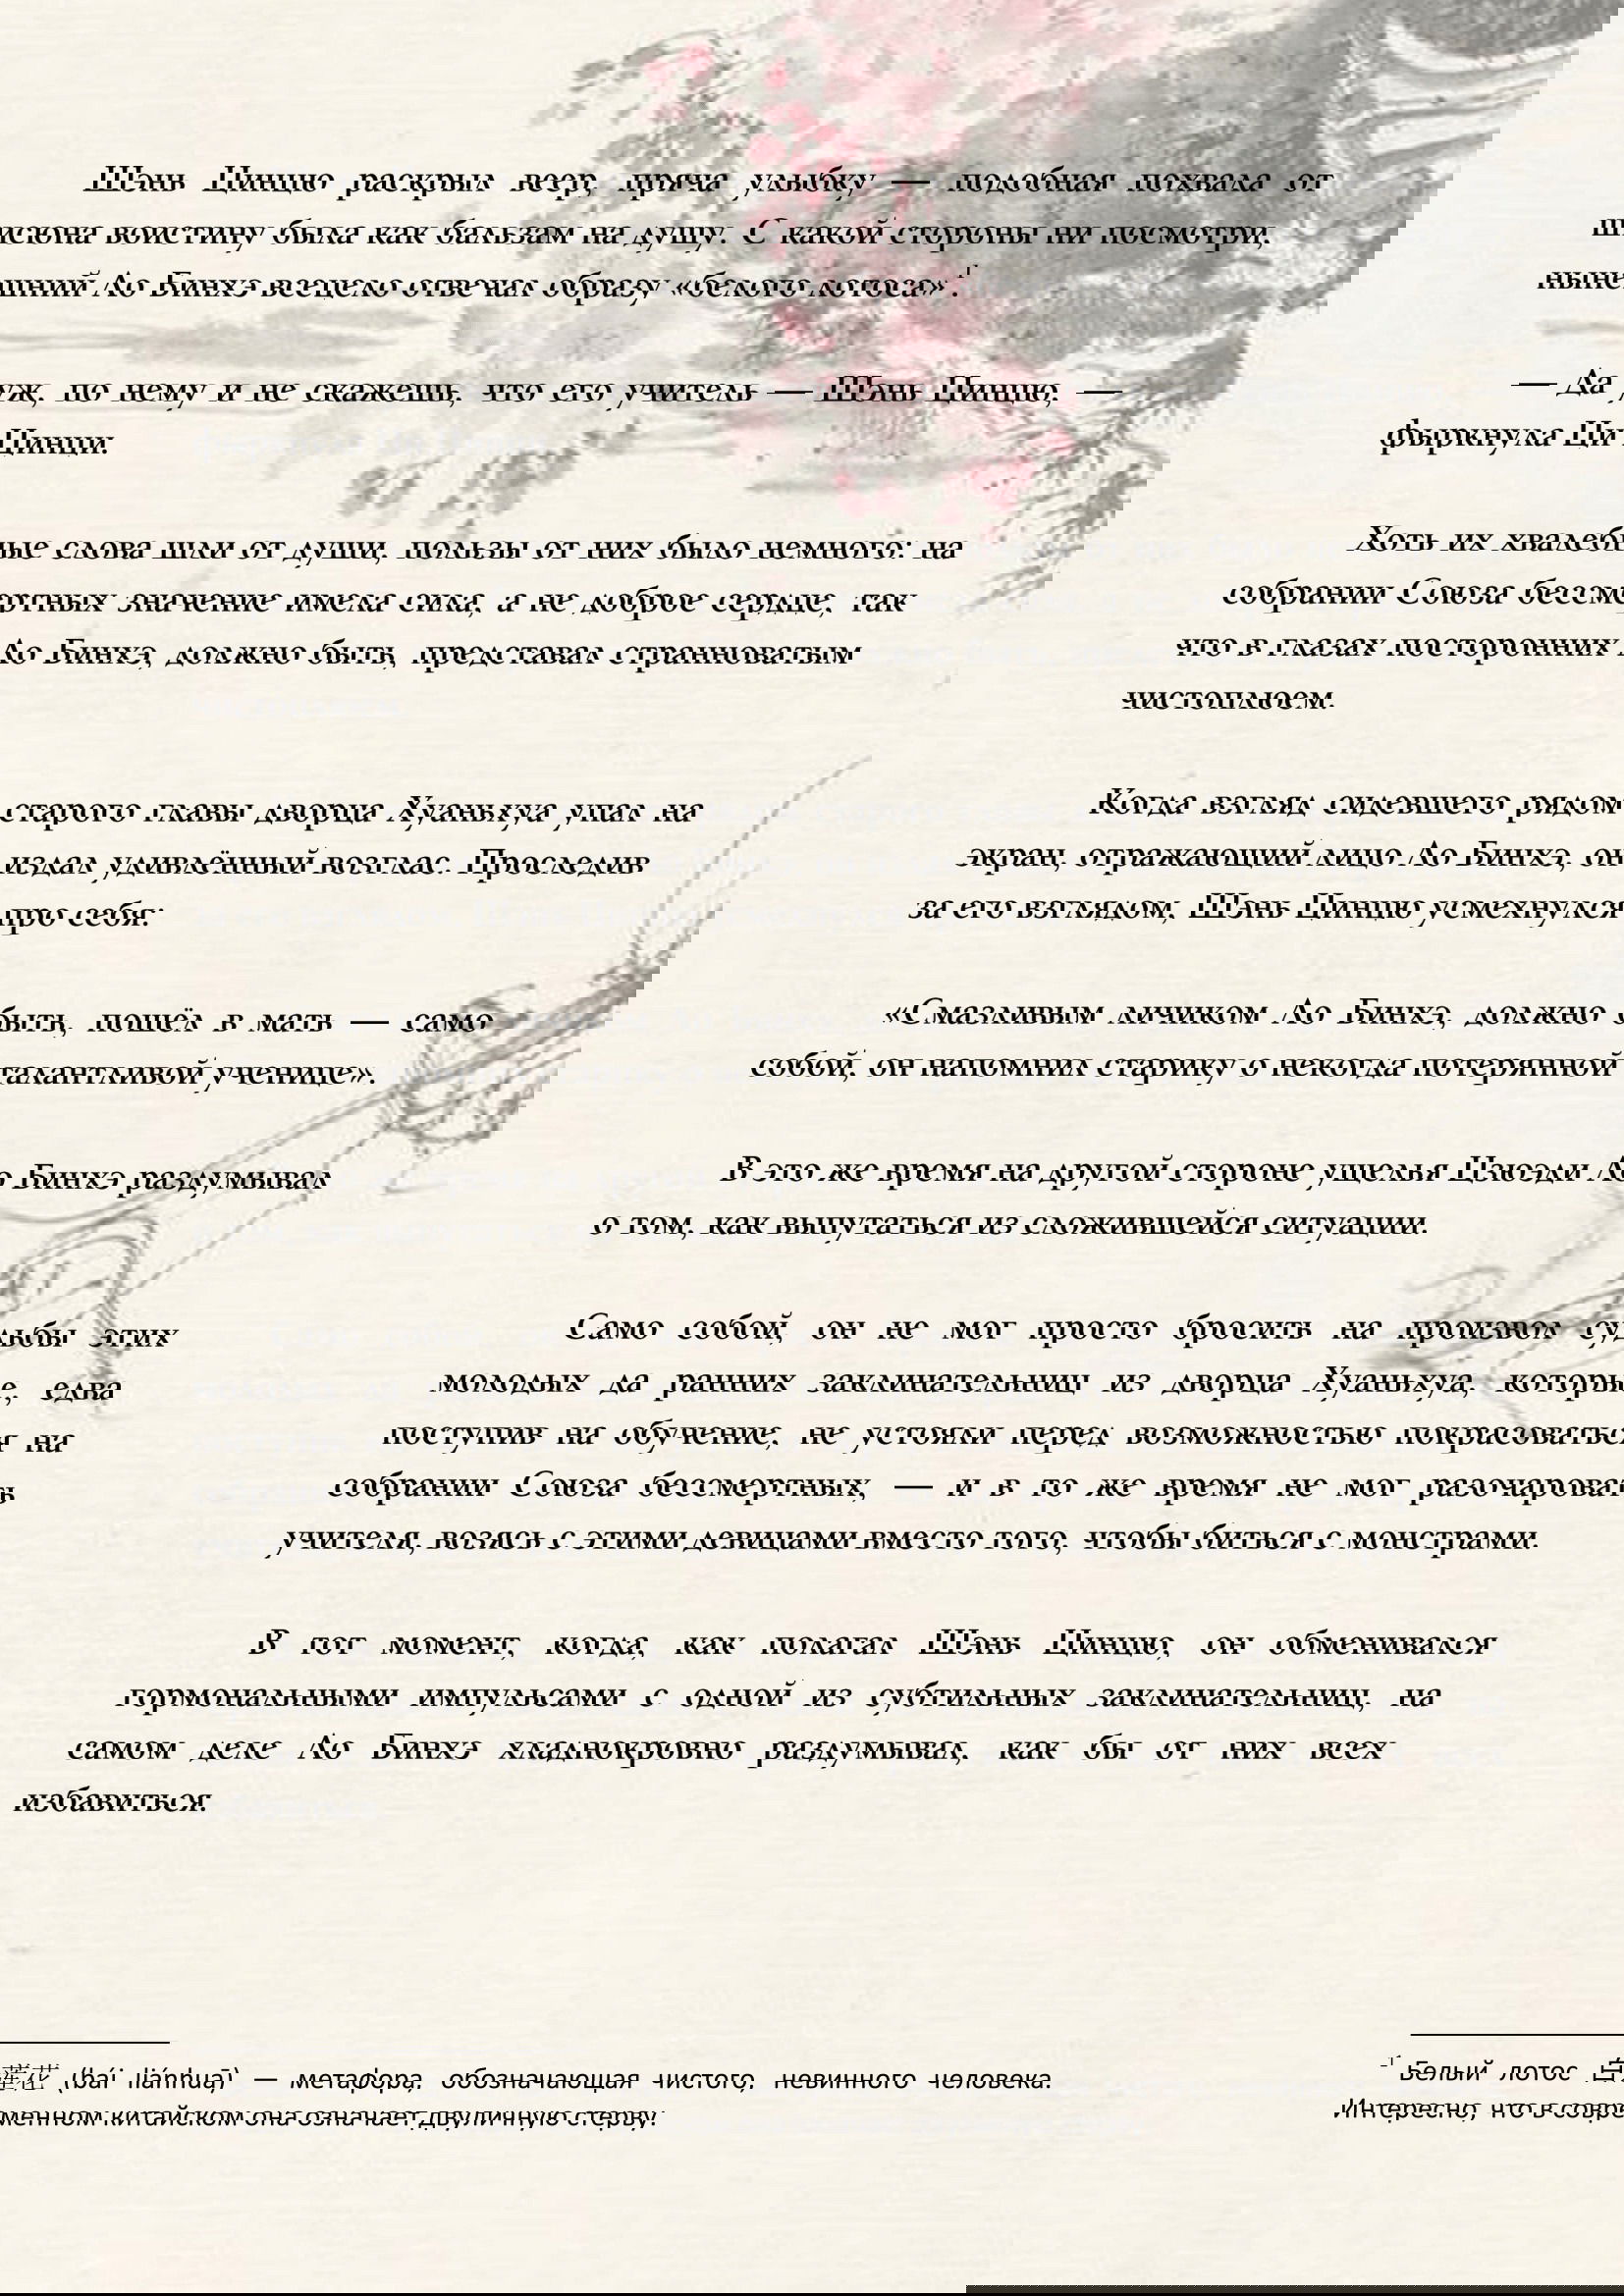 Шэнь Цинцю раскрыл веер, пряча улыбку — подобная похвала от
шисюна воистину была как бальзам на душу. С какой стороны ни посмотри,
нынешний Ло Бинхэ всецело отвечал образу «белого лотоса».
— Да уж, по нему и не скажешь, что его учитель — Шэнь Цинцю, —
фыркнула Ци Цинци.
Хоть их хвалебные слова шли от души, пользы от них было немного: на
собрании Союза бессмертных значение имела сила, а не доброе сердце, так
что в глазах посторонних Ло Бинхэ, должно быть, представал странноватым
чистоплюем.
Когда взгляд сидевшего рядом старого главы дворца Хуаньхуа упал на
экран, отражающий лицо Ло Бинхэ, он издал удивлённый возглас. Проследив
за его взглядом, Шэнь Цинцю усмехнулся про себя:
«Смазливым личиком Ло Бинхэ, должно быть, пошёл в мать — само
собой, он напомнил старику о некогда потерянной талантливой ученице».
В это же время на другой стороне ущелья Цзюэди Ло Бинхэ раздумывал
о том, как выпутаться из сложившейся ситуации.
Само собой, он не мог просто бросить на произвол судьбы этих
молодых да ранних заклинательниц из дворца Хуаньхуа, которые, едва
поступив на обучение, не устояли перед возможностью покрасоваться на
собрании Союза бессмертных, — и в то же время не мог разочаровать
учителя, возясь с этими девицами вместо того, чтобы биться с монстрами.
В тот момент, когда, как полагал Шэнь Цинцю, он обменивался
гормональными импульсами с одной из субтильных заклинательниц, на
самом деле Ло Бинхэ хладнокровно раздумывал, как бы от них всех
избавиться.
Белый лотос 白莲花 (bái liánhuā) — метафора, обозначающая чистого, невинного человека.
Интересно, что в современном китайском она означает двуличную стерву.